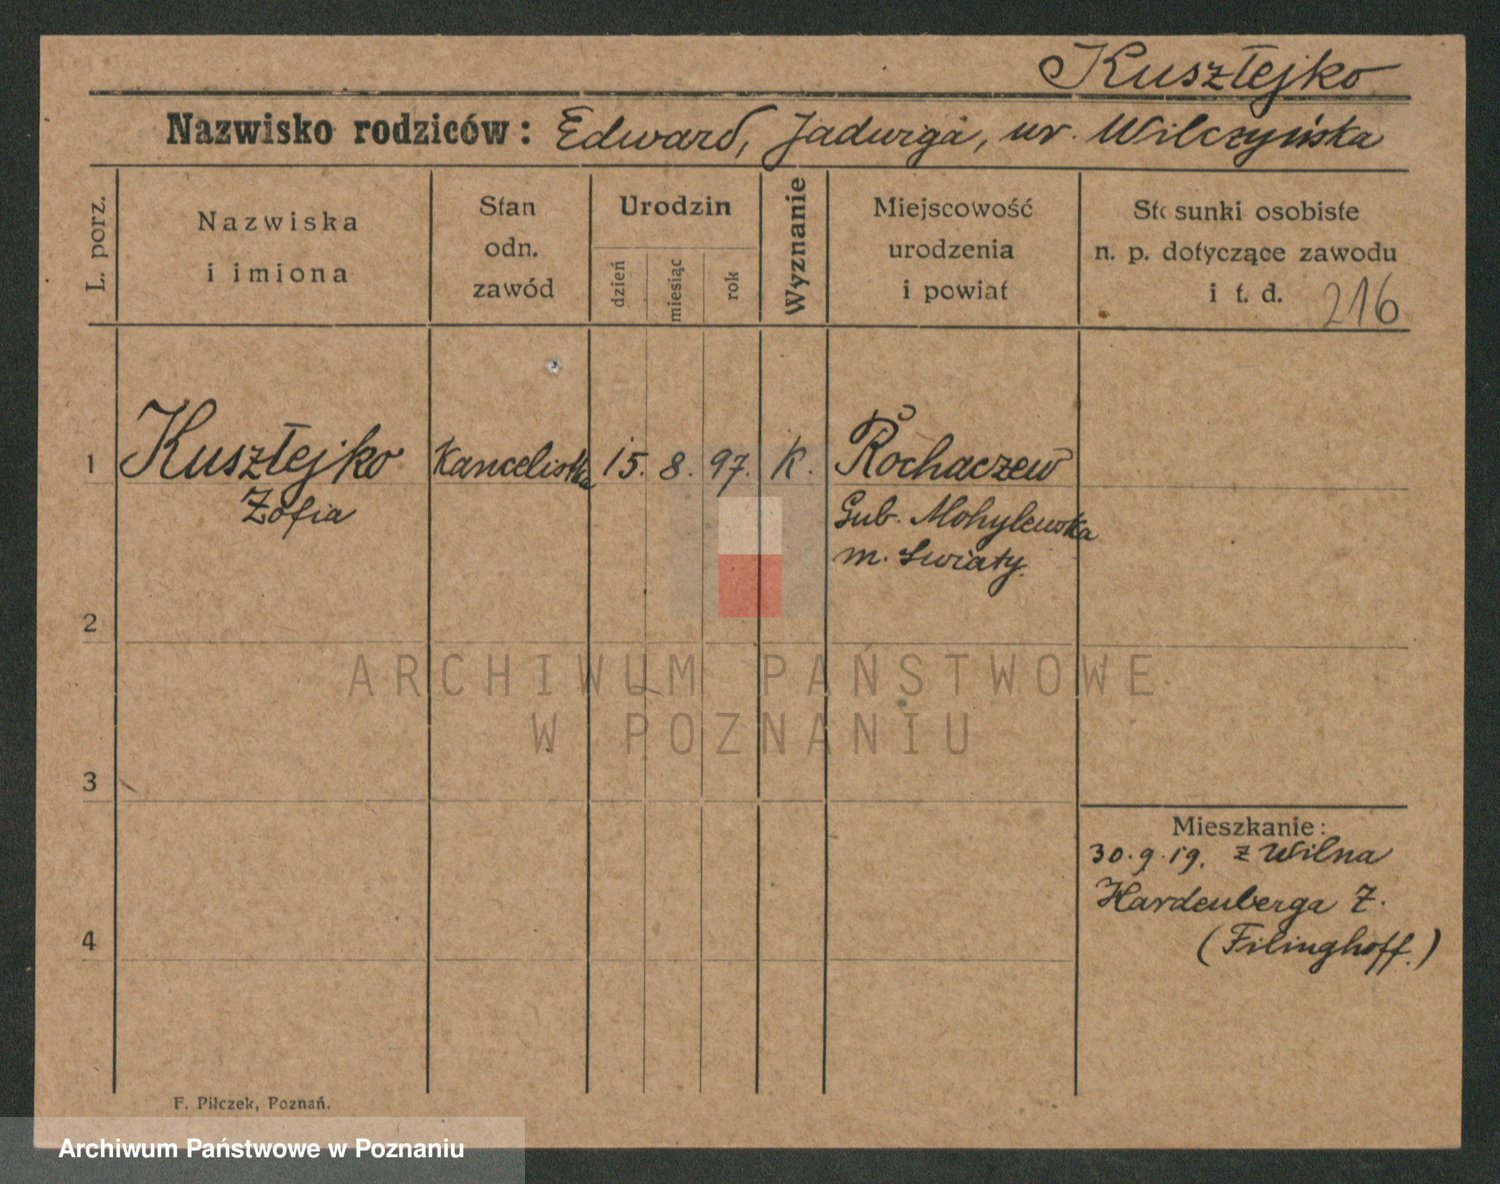 Kusztejko
Nazwisko rodziców: Edward, Jadwiga, ur. Wilczyńska
L. porz.
Nazwiska
i imiona
Stan
odn.
zawód
Urodzin
dzień
miesiąc
rok
Wyznanie
Miejscowość
urodzenia
i powiat
Stosunki osobiste
n. p. dotyczące zawodu
i t. d. 216
1 Kusztejko Kancelistka 15. 8. 97. K. Rochaczew
Zofia Gub. Mohylewska
m. Swiaty.
2
ARCHIWUM PAŃSTWOWE
W POZNANIU
3
Mieszkanie:
30.9.19. z Wilna
Hardenberga 7.
4 (Filinghoff.)
F. Pilczek, Poznań.
Archiwum Państwowe w Poznaniu